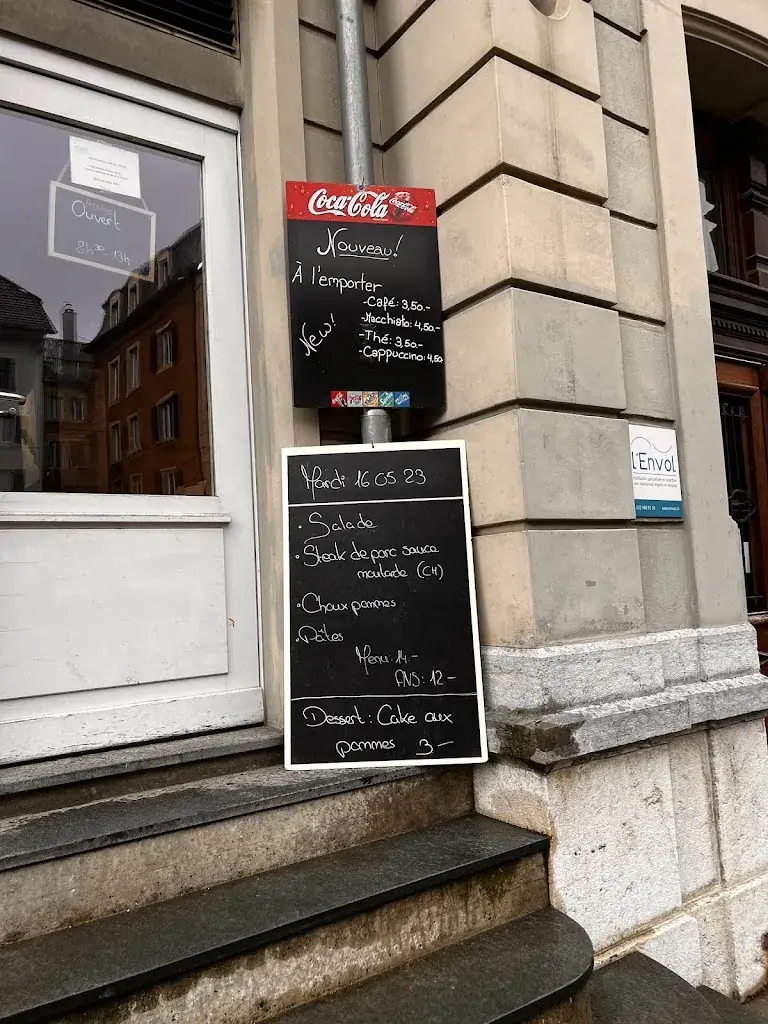 Ouvert
8h30 - 13h
Coca-Cola
Coca-Cola
Nouveau!
À l'emporter
-Café: 3,50.-
-Macchiato: 4,50.-
New!
-Thé: 3,50.-
-Cappuccino: 4,50
Mardi 16 05 23
• Salade
• Steak de porc sauce
moutarde (CH)
• Choux pommes
• Pâtes
Menu: 14.-
AVS: 12.-
Dessert: Cake aux
pommes 3.-
l'Envol